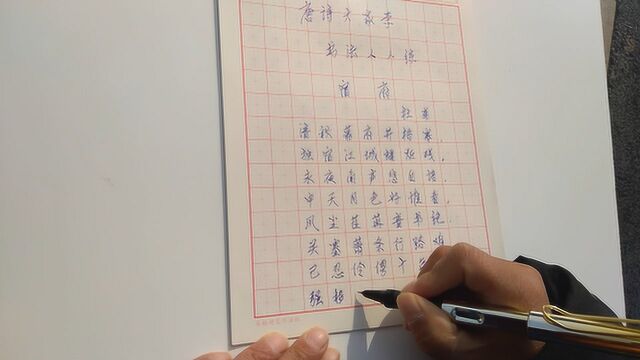 唐诗大家学
书法人人练
宿府
杜甫
清秋幕府井梧寒，
独宿江城蜡炬残．
永夜角声悲自语，
中天月色好谁看．
风尘荏苒音书绝，
关塞萧条行路难
已忍伶俜十
强移